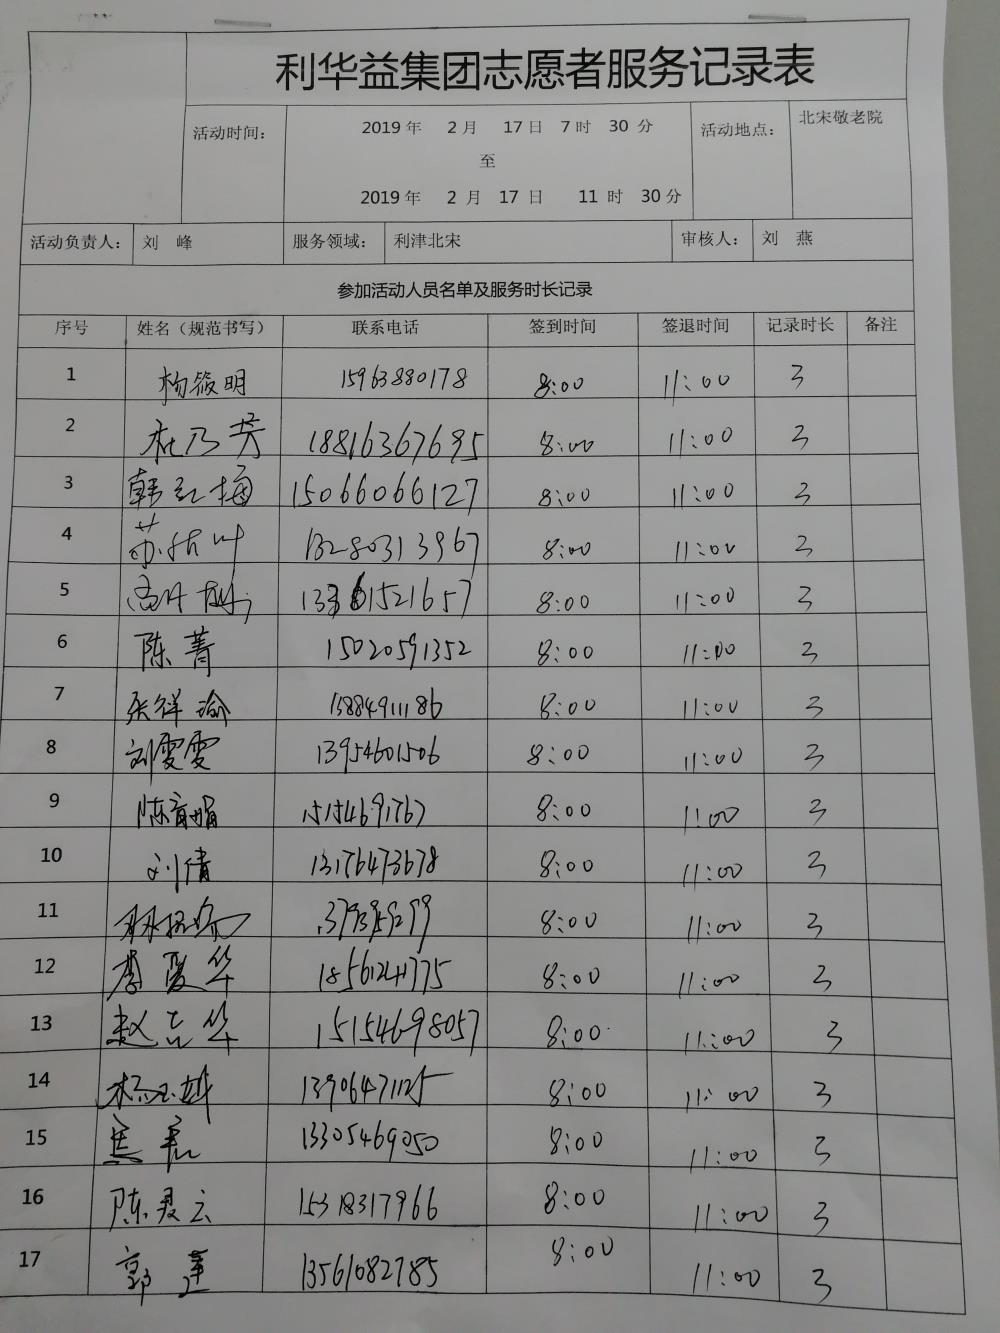 利华益集团志愿者服务记录表
活动时间： 2019 年 2 月 17 日 7 时 30 分 活动地点： 北宋敬老院
至
2019 年 2 月 17 日 11 时 30 分
活动负责人： 刘 峰 服务领域： 利津北宋 审核人： 刘 燕
参加活动人员名单及服务时长记录
序号 姓名（规范书写） 联系电话 签到时间 签退时间 记录时长 备注
1 杨筱明 15963880178 8:00 11:00 3
2 杜乃芳 18816367695 8:00 11:00 3
3 韩红梅 15066066127 8:00 11:00 3
4 13280313967 8:00 11:00 3
5 8:00 11:00 3
6 陈菁 15020591352 8:00 11:00 3
7 张祥瑜 15884911186 8:00 11:00 3
8 刘雯雯 13954601506 8:00 11:00 3
9 15154691767 8:00 11:00 3
10 刘倩 13176473678 8:00 11:00 3
11 8:00 11:00 3
12 8:00 11:00 3
13 15154698057 8:00 11:00 3
14 13906471125 8:00 11:00 3
15 13305469050 8:00 11:00 3
16 15318317966 8:00 11:00 3
17 郭莲 13561082785 8:00 11:00 3